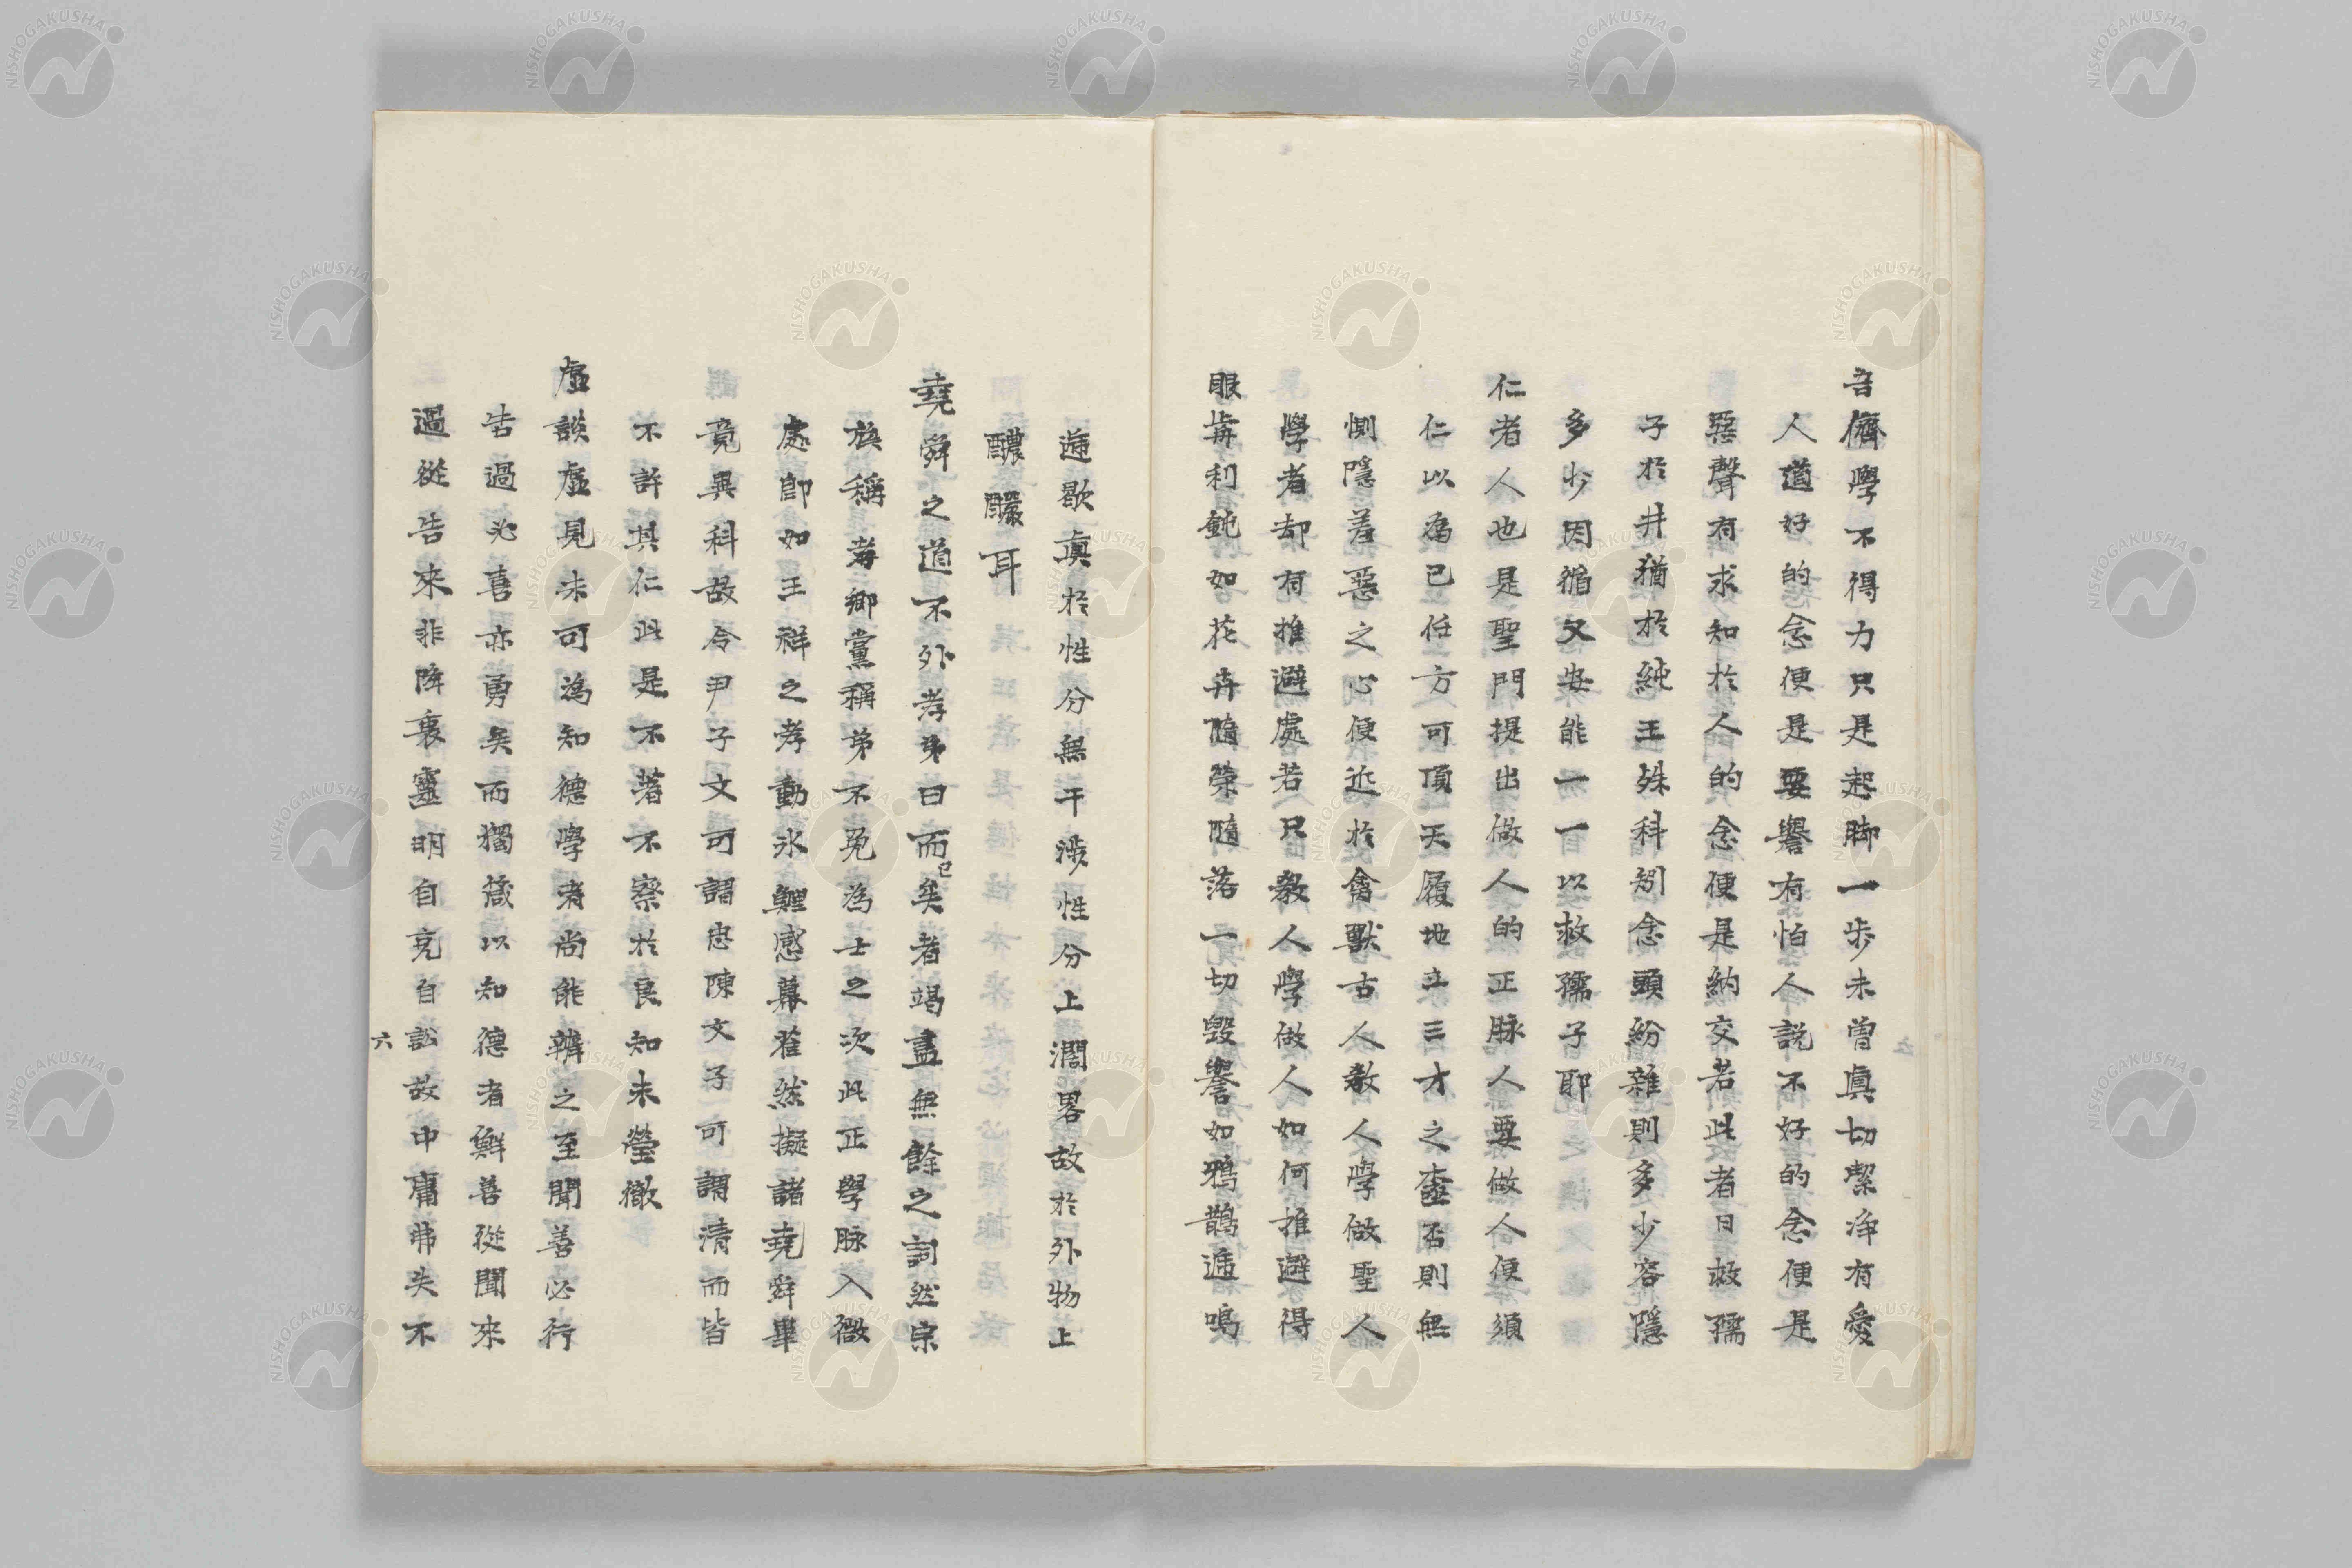 吾儕學不得力只是起脚一歩未曽眞切潔浄有愛
人道好的念便是要譽有怕人説不好的念便是
惡聲有求知於人的念便是納交若此者日救孺
子於井猶於純王殊科矧念頭紛雜則多少容隱
多少因循又安能一一以救孺子耶
仁者人也是聖門提出做人的正脉人要做人便須
仁以為己任方可頂天履地立三才之極否則無
惻隱羞惡之心便近於禽獸古人教人學做聖人
學者却有推避處若只教人學做人如何推避得
眼耑利鈍如花卉隨榮隨落一切毀譽如鴉鵲逓鳴
逓歇眞於性分無干渉性分上濶畧故於外物上
醲釅耳
堯舜之道不外孝弟曰而已矣者竭盡無餘之詞然宗
族稱孝郷黨稱弟不免為士之次此正學脉入微
處即如王祥之孝動氷鯉感幕雀然擬諸堯舜畢
竟異科故令尹子文可謂忠陳文子可謂清而皆
不許其仁此是不著不察於良知未瑩徹
虚談虚見未可為知德學者尚能辨之至聞善必行
告過必喜亦勇矣而獨箴以知德者鮮善從聞來
過從告來非降衷靈明自克自訟故中庸弗失不
六